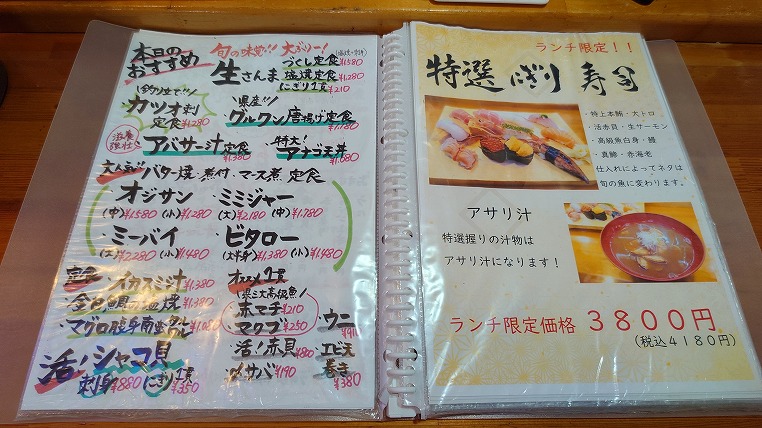 本日の
おすすめ
旬の味覚!! 大ぶり!
生さんま
づくし定食 ¥1580
塩焼定食 ¥1,280
にぎり1貫 ¥210
カツオ刺
定食 ¥1280
県産!!
グルクン唐揚げ定食
¥1,180
アバサー汁定食
¥1,380
特大!
アナゴ天丼
¥1,680
バター焼・煮付・マース煮 定食
・オジサン
(中)¥1580 (小)¥1,280
・ミミジャー
(大)¥2,180 (中)¥1,780
・ミーバイ
(大)¥2280 (小)¥1,480
・ビタロー
(小)¥1,480
・イカスミ汁 ¥1,380
オススメ1貫
県三大高級魚
・赤マチ ¥210
・マクブ ¥250
・ウニ
・活!赤貝
・〆サバ ¥190
・エビ天
巻き
¥380
活!シャコ貝
刺身 ¥880 にぎり1貫 ¥350
ランチ限定!!
特選にぎり寿司
・特上本鮪・大トロ
・活赤貝・生サーモン
・高級魚白身・鰻
・真鯵・赤海老
仕入れによってネタは
旬の魚に変わります。
アサリ汁
特選握りの汁物は
アサリ汁になります!
ランチ限定価格 3800円
(税込4180円)